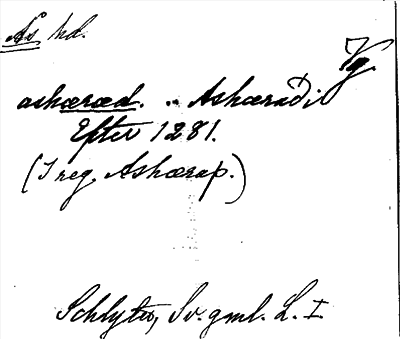 As hd.
Vg.
ashæræd. .. Ashæraði
Efter 1281.
(I reg. Ashærap.)
Schlyter, Sv. gml. L. I.